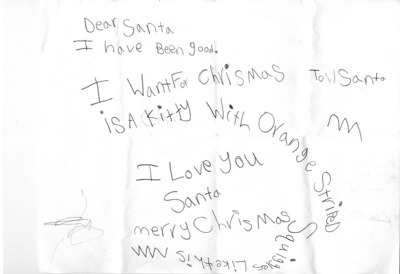 Dear Santa
I have Been good.
I Want For Chrismas
is A Kitty With Orange Striped
Squigles Like this
I Love You
Santa
merry Chrismas